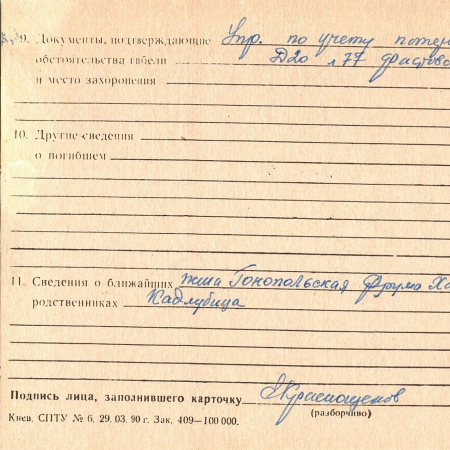 9. Документы, подтверждающие Упр. по учету потер
обстоятельства гибели Д20 л 77 фастово
и место захоронения
10. Другие сведения
о погибшем
11. Сведения о ближайших жена Гонопольская Фрума Ха
родственниках Кадлубица
Подпись лица, заполнившего карточку Краснощеков
(разборчиво)
Киев. СПТУ № 6. 29. 03. 90 г. Зак. 409—100 000.